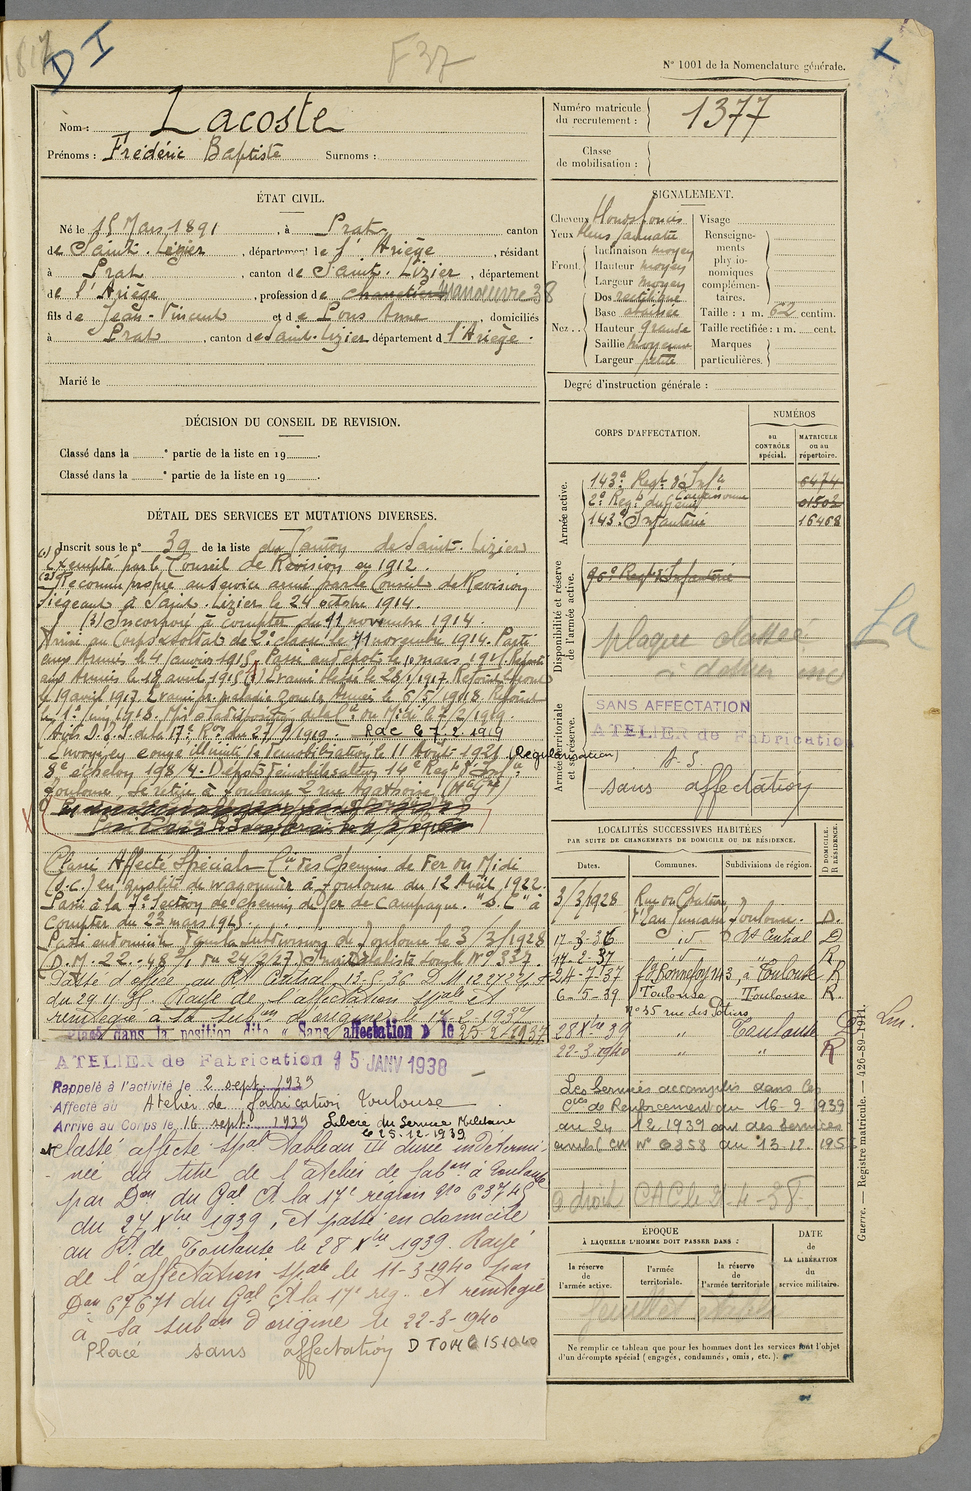 D I
F 37
N° 1001 de la Nomenclature générale.
Nom : Lacoste
Prénoms : Frédéric Baptiste Surnoms :
Numéro matricule du recrutement : 1377
Classe de mobilisation :
ÉTAT CIVIL.
Né le 15 Mars 1891, à Prat canton
de Saint-Lizier, département de l'Ariège, résidant
à Prat, canton de Saint-Lizier, département
de l'Ariège, profession de manoeuvre 38
fils de Jean-Vincent et de Pous Anne, domiciliés
à Prat, canton de Saint-Lizier département d l'Ariège.
Marié le
SIGNALEMENT.
Cheveux blonds foncés
Yeux bleus
Front. Inclinaison moyen
Hauteur moyen
Largeur moyen
Nez.. Dos rectiligne
Base abaissée
Hauteur grande
Saillie moyenne
Largeur petite
Visage
Renseignements physionomiques complémentaires.
Taille : 1 m. 62 centim.
Taille rectifiée : 1 m. cent.
Marques particulières.
Degré d'instruction générale :
DÉCISION DU CONSEIL DE REVISION.
Classé dans la e partie de la liste en 19 .
Classé dans la e partie de la liste en 19 .
CORPS D'AFFECTATION.
NUMÉROS
au CONTRÔLE spécial.
MATRICULE ou au répertoire.
Armée active.
143e Regt d'Infie 6474
2e Regt du Génie 01502
143e Infanterie 16468
Disponibilité et réserve de l'armée active.
96e Regt d'Infanterie
plaque classée
Armée territoriale et sa réserve.
SANS AFFECTATION
ATELIER de Fabrication
A. S.
sans affectation
DÉTAIL DES SERVICES ET MUTATIONS DIVERSES.
Inscrit sous le n° 39 de la liste du Canton de Saint-Lizier
(1) Exempté par le Conseil de Révision en 1912.
(2) Reconnu propre au service armé par le Conseil de Revision
siégeant à Saint-Lizier le 24 octobre 1914.
(3) Incorporé à compter du 11 novembre 1914.
Arrivé au Corps et soldat de 2e classe le 11 novembre 1914. Parti
aux Armées le 4 janvier 1915. Passé au dépôt le 10 mars 1915. Reparti
aux Armées le 18 avril 1915. Evacué blessé le 23/1/1917. Retour au front
le 19 avril 1917. Evacué pr. maladie zone des Armées le 6/5/1918. Retour
le 1er 1918. Mis à la disposition de la Cie du Midi le 7/2/1919.
RdC le 7.2.1919
Envoyé en congé illimité de démobilisation le 11 Août 1921 (Regularisation)
8e échelon 198/4. Dépôt démobilisateur 14e Regt d'Infie
Toulouse, se retire à Toulouse 2 rue Agathoise (Hte Gne)
Classé Affecté Spécial Cie des Chemins de Fer du Midi
(S.C.) en qualité de wagonnier à Toulouse du 12 Avril 1922.
Passé à la 7e Section de chemins de fer de Campagne. "S.C" à
compter du 23 mars 19
Passé en domicile dans la Subdivision de Toulouse le 3/3/1928
Passé d'office au Rt Central 13.5.36
du 29.4.37. Rayé de l'affectation spale et
reintégré à sa subon d'origine le 17-2-1937
Placé dans la position dite « Sans affectation » le 25-2-1937
ATELIER de Fabrication 15 JANV 1938
Rappelé à l'activité le 2 sept. 1939
Affecté au Atelier de fabrication Toulouse
Arrivé au Corps le 16 sept. 1939 Libéré du Service Militaire
le 25-12-1939
et classé affecté spal Tableau III durée indétermi-
née au titre de l'atelier de fabon à Toulouse
par Don du Gal Ct la 17e région No 63745
du 27 Xbre 1939, et passé en domicile
au Rt de Toulouse le 28 Xbre 1939. Rayé
de l'affectation spale le 11-3-1940 par
Don 67671 du Gal Ct la 17e reg. et reintégré
à sa subon d'origine le 22-3-1940
Placé sans affectation
LOCALITÉS SUCCESSIVES HABITÉES
PAR SUITE DE CHANGEMENTS DE DOMICILE OU DE RÉSIDENCE.
Dates. Communes. Subdivisions de région. D DOMICILE. R RÉSIDENCE.
3/3/1928 Toulouse. D.
17-3-36 id Rt Central D
17-2-37 R
24-7-37 fg Bonnefoy 43, à Toulouse R
6-5-39 Toulouse Toulouse R.
n° 35 rue des Potiers
28 Xbre 39 " Toulouse D
22-3-1940 " " R
Les services accomplis dans les
Cies de Renforcement du 16.9.1939
au 24.12.1939 ont des services
civils (CM N° 6358 du 13.12.195
a droit CAC le 31-4-38
La
Lm.
ÉPOQUE
À LAQUELLE L'HOMME DOIT PASSER DANS :
la réserve de l'armée active.
l'armée territoriale.
la réserve de l'armée territoriale
DATE de LA LIBÉRATION du service militaire.
feuillet
Ne remplir ce tableau que pour les hommes dont les services font l'objet
d'un décompte spécial (engagés, condamnés, omis, etc.).
Guerre. — Registre matricule. — 426-89-1911.